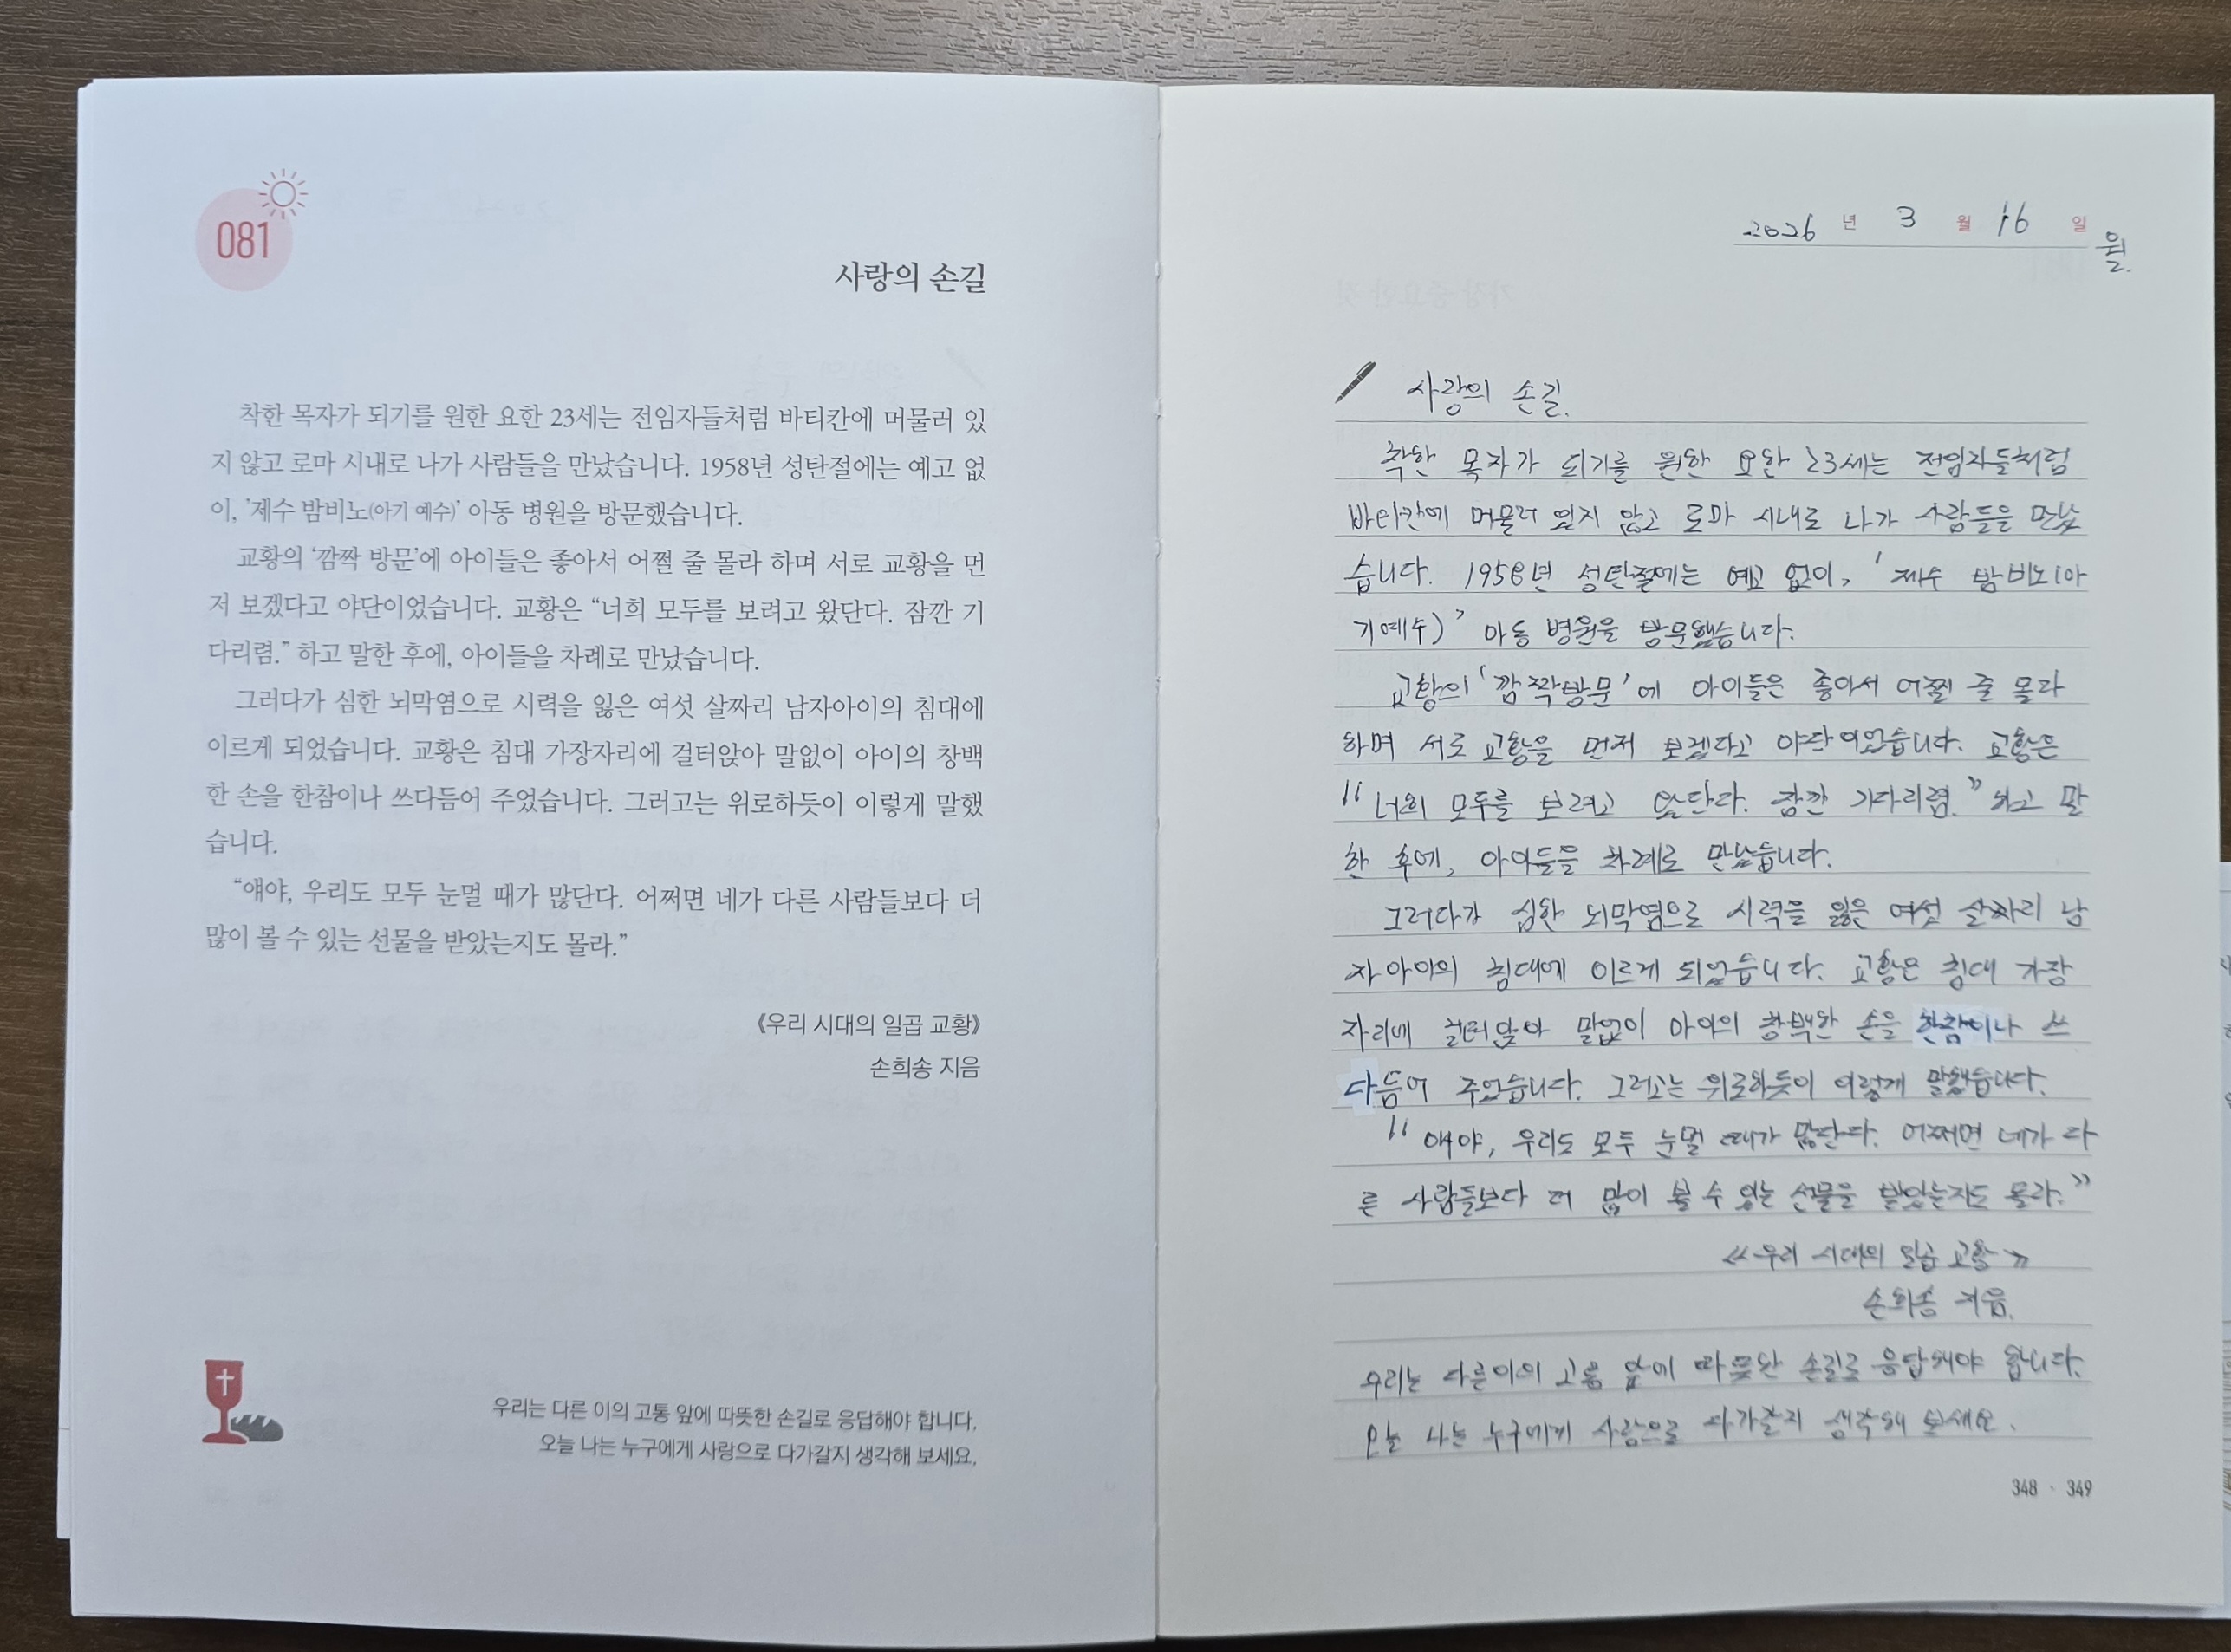 081
사랑의 손길
착한 목자가 되기를 원한 요한 23세는 전임자들처럼 바티칸에 머물러 있
지 않고 로마 시내로 나가 사람들을 만났습니다. 1958년 성탄절에는 예고 없
이, '제수 밤비노(아기 예수)' 아동 병원을 방문했습니다.
교황의 ‘깜짝 방문’에 아이들은 좋아서 어쩔 줄 몰라 하며 서로 교황을 먼
저 보겠다고 야단이었습니다. 교황은 “너희 모두를 보려고 왔단다. 잠깐 기
다리렴.” 하고 말한 후에, 아이들을 차례로 만났습니다.
그러다가 심한 뇌막염으로 시력을 잃은 여섯 살짜리 남자아이의 침대에
이르게 되었습니다. 교황은 침대 가장자리에 걸터앉아 말없이 아이의 창백
한 손을 한참이나 쓰다듬어 주었습니다. 그러고는 위로하듯이 이렇게 말했
습니다.
“얘야, 우리도 모두 눈멀 때가 많단다. 어쩌면 네가 다른 사람들보다 더
많이 볼 수 있는 선물을 받았는지도 몰라.”
《우리 시대의 일곱 교황》
손희송 지음
우리는 다른 이의 고통 앞에 따뜻한 손길로 응답해야 합니다.
오늘 나는 누구에게 사랑으로 다가갈지 생각해 보세요.
2026 년 3 월 16 일
월.
사랑의 손길.
착한 목자가 되기를 원한 요한 23세는 전임자들처럼
바티칸에 머물러 있지 않고 로마 시내로 나가 사람들을 만났
습니다. 1958년 성탄절에는 예고 없이, '제수 밤비노(아
기예수)' 아동 병원을 방문했습니다.
교황의 '깜짝방문'에 아이들은 좋아서 어쩔 줄 몰라
하며 서로 교황을 먼저 보겠다고 야단이었습니다. 교황은
"너희 모두를 보려고 왔단다. 잠깐 기다리렴." 하고 말
한 후에, 아이들을 차례로 만났습니다.
그러다가 심한 뇌막염으로 시력을 잃은 여섯 살짜리 남
자아이의 침대에 이르게 되었습니다. 교황은 침대 가장
자리에 걸터앉아 말없이 아이의 창백한 손을 한참이나 쓰
다듬어 주었습니다. 그러고는 위로하듯이 이렇게 말했습니다.
"얘야, 우리도 모두 눈멀 때가 많단다. 어쩌면 네가 다
른 사람들보다 더 많이 볼 수 있는 선물을 받았는지도 몰라."
《우리 시대의 일곱 교황》
손희송 지음.
우리는 다른이의 고통 앞에 따뜻한 손길로 응답해야 합니다.
오늘 나는 누구에게 사랑으로 다가갈지 생각해 보세요.
348 · 349